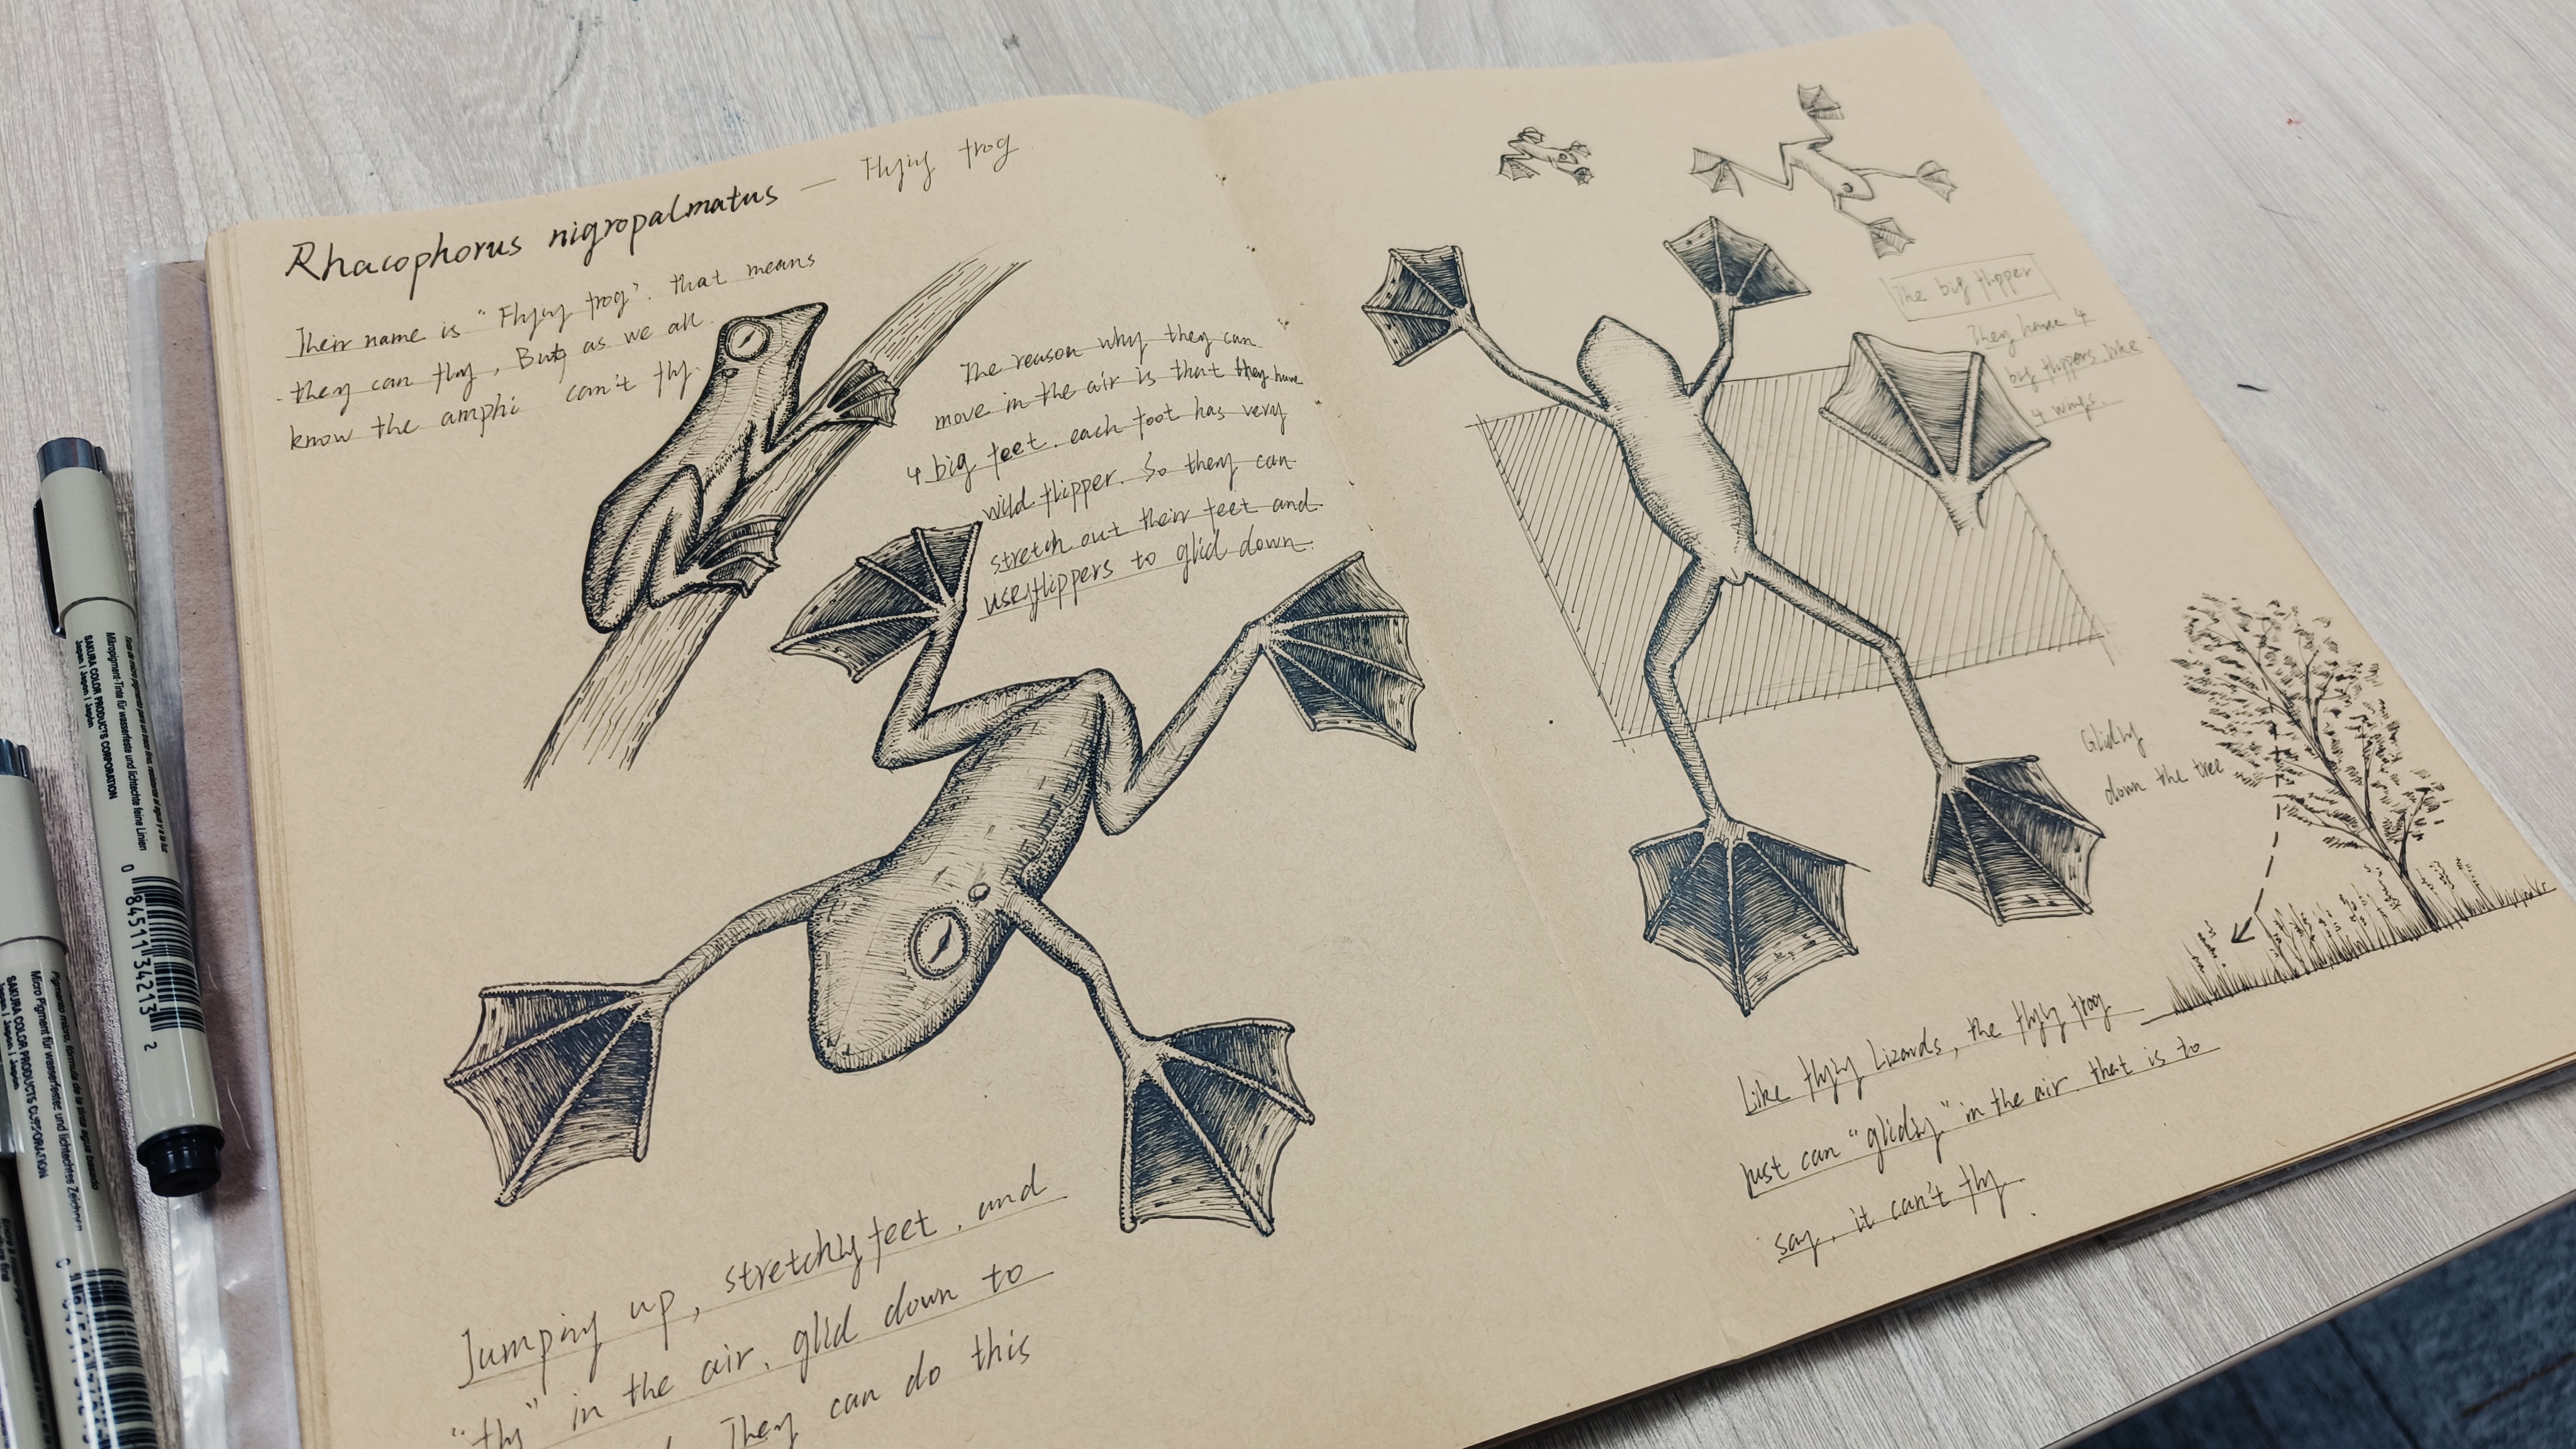 Rhacophorus nigropalmatus — Flying frog
Their name is "Flying frog". that means
they can fly, But as we all
know the amphi can't fly.
The reason why they can
move in the air is that they have
4 big feet. each foot has very
wild flipper. So they can
stretch out their feet and
use flippers to glid down.
Jumping up, stretchly feet, and
"fly" in the air, glid down to
They can do this
The big flipper
They have 4
big flippers like
4 wings.
Gliding
down the tree
Like flying Lizards, the flying frog
just can "gliding" in the air. that is to
say, it can't fly.
SAKURA COLOR PRODUCTS CORPORATION
Japan | Japon
Mikropigment-Tinte für wasserfeste und lichtechte feine Linien
0 84511 34213 2
Micro Pigment für wasserfestes und lichtechtes Zeichnen
SAKURA COLOR PRODUCTS CORPORATION
Japan | Japon